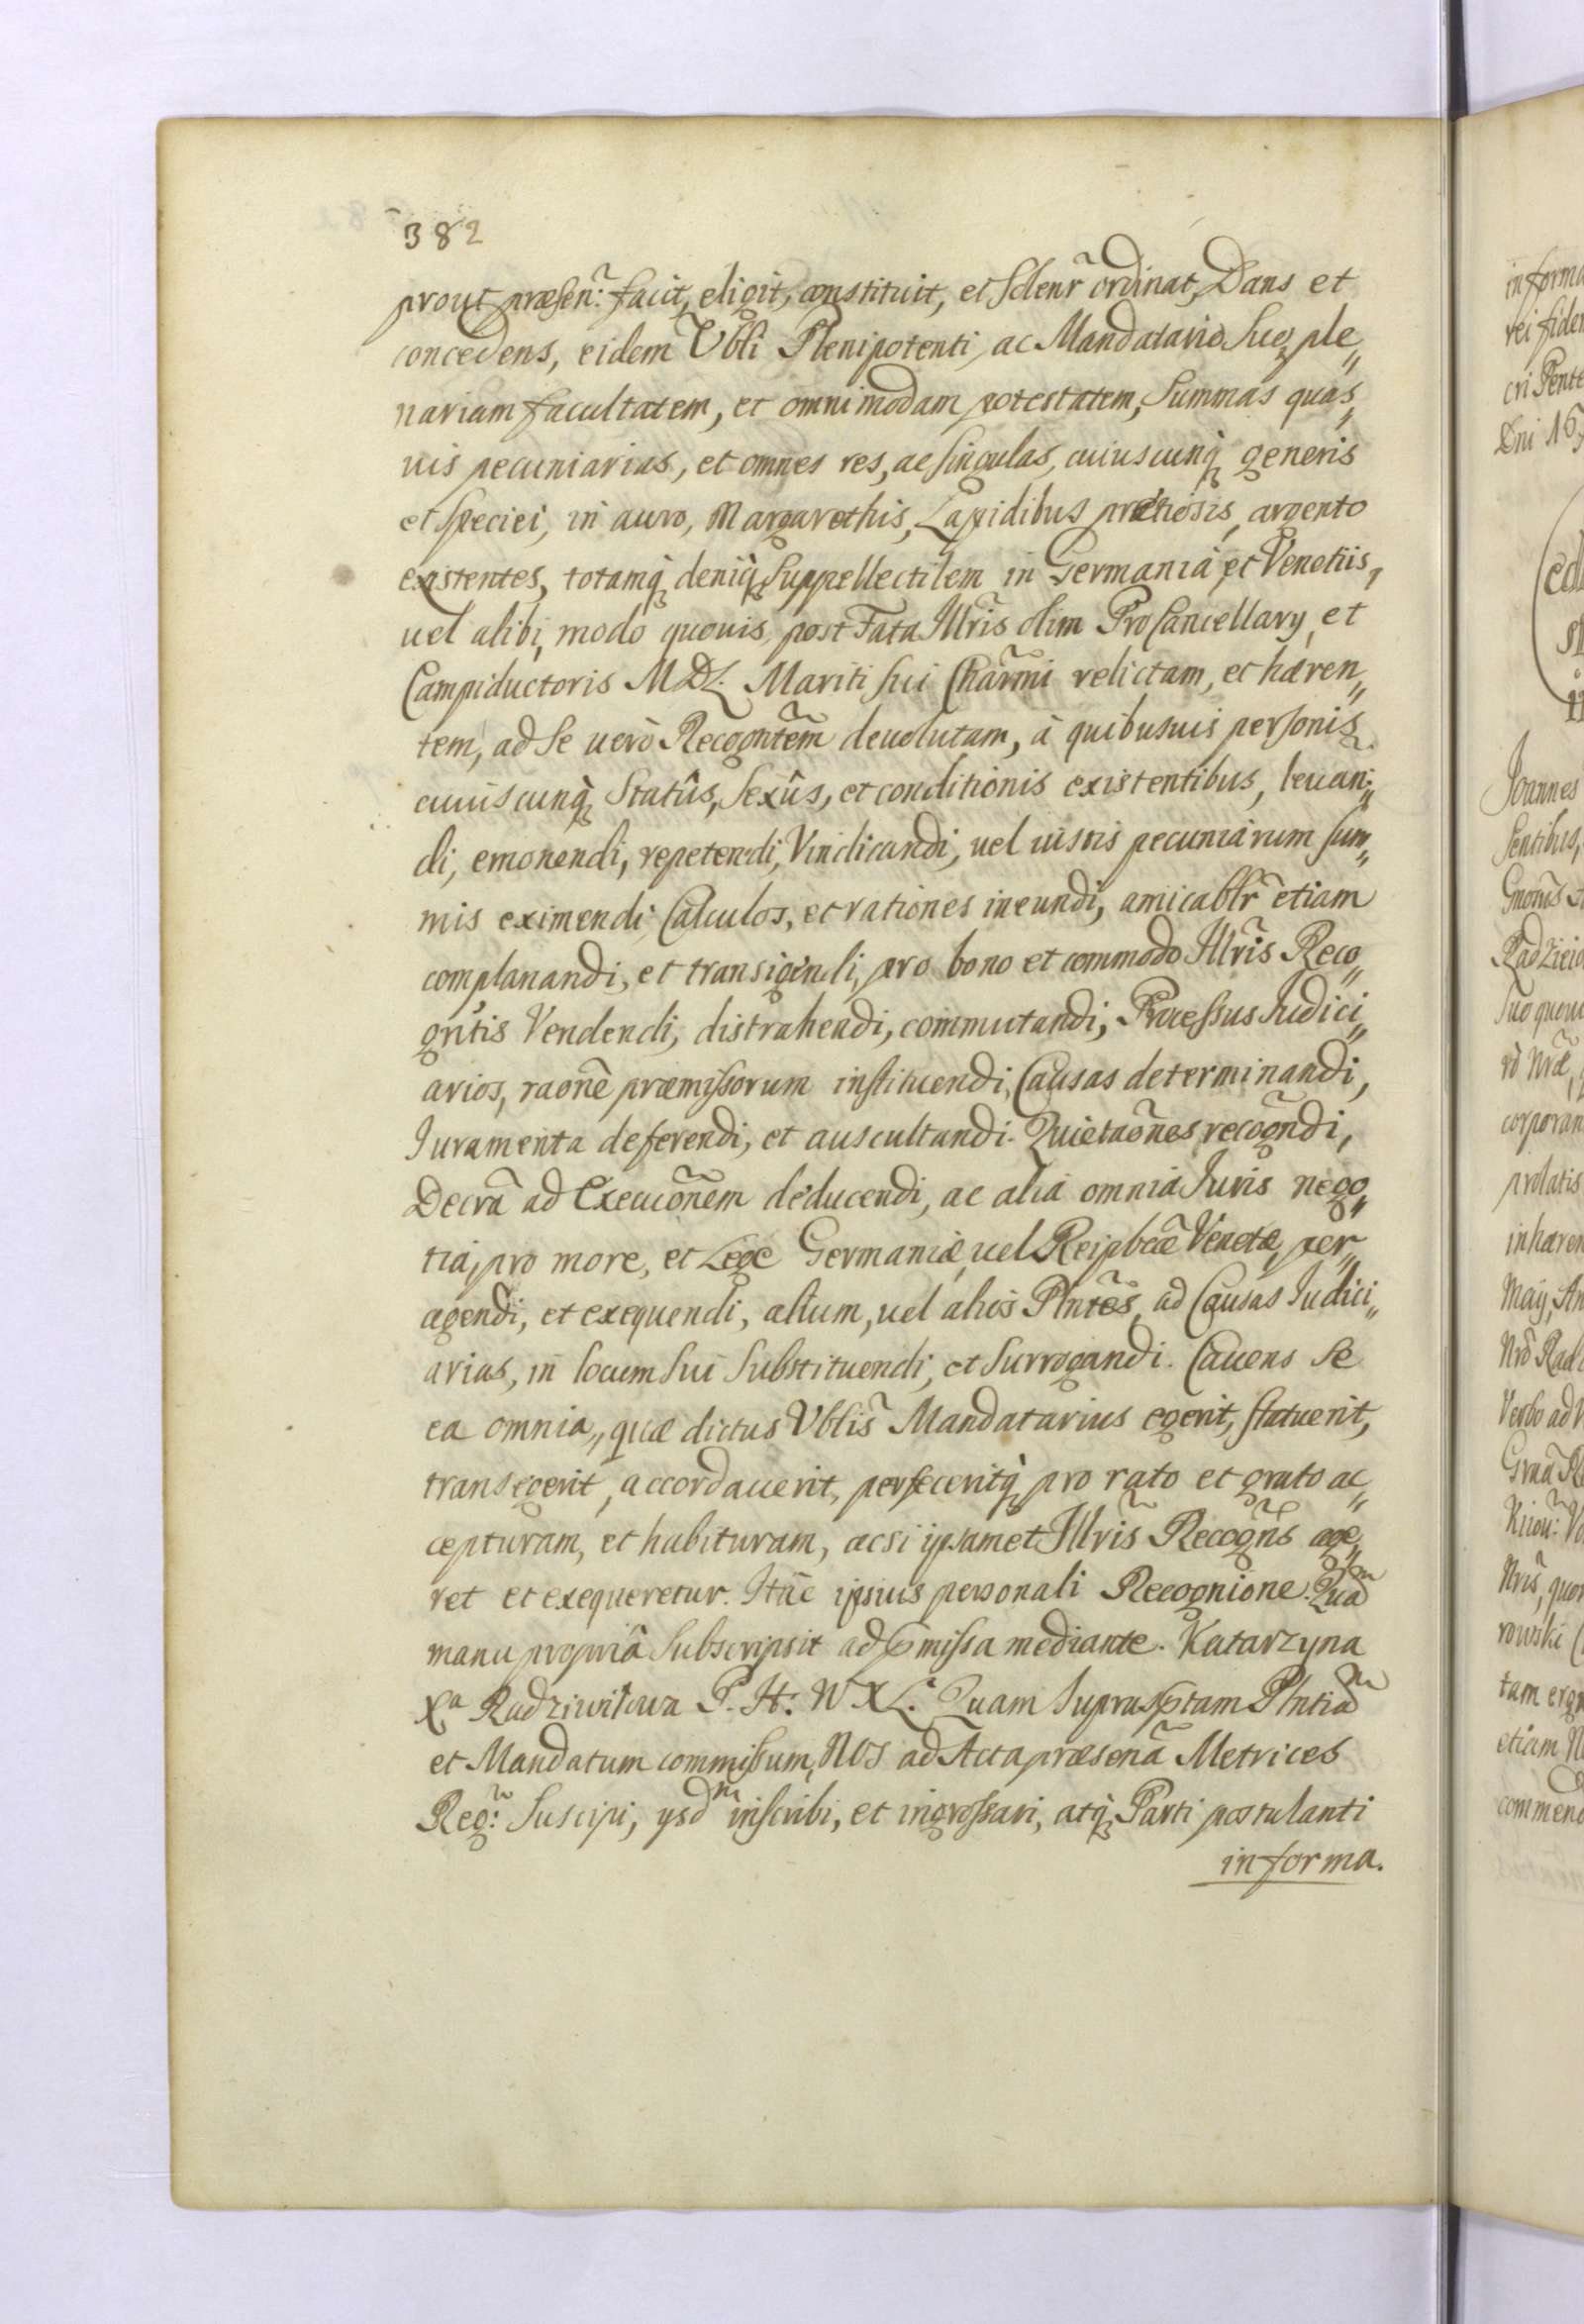 382
prout præsen: facit, eligit, constituit, et Solenr ordinat, Dans et
concedens, eidem Vbli Plenipotenti, ac Mandatario Suo, ple„
nariam facultatem, et omnimodam potestatem, Summas quas„
uis pecuniarias, et omnes res, ac singulas, cuiuscunq́ generis
et Speciei, in auro, Margarethis, Lapidibus prætiosis, argento
existentes, totamq́ deniq́ Suppellectilem in Germaniâ et Venetiis,
uel alibi, modo quouis, post Fata Illris olim ProCancellary, et
Campiductoris MDL. Mariti sui Charmi relictam, et hæren„
tem, ad Se uerò Recogntem deuolutam, à quibusuis personis
cuiuscunq́ Statûs, Sexûs, et conditionis existentibus, leuan„
di, emonendi, repetendi, Vindicandi, uel iustis pecuniarum sum„
mis eximendi, Calculos, et rationes ineundi, amicablr etiam
complanandi, et transigendi, pro bono et commodo Illris Reco„
gntis Vendendi, distrahendi, commutandi, Processus Judici„
arios, raone præmissorum instituendi, Causas determinandi,
Iuramenta deferendi, et auscultandi. Quietaones recogndi,
Decra ad Execuonem deducendi, ac alia omnia Juris nego„
tia, pro more, et Lege Germaniæ, uel Reipbcæ Venetæ per„
agendi, et exequendi, alium, uel alios Plntes, ad Causas Iudici„
arias, in locum sui Substituendi, et Surrogandi. Cauens Se
ea omnia, quæ dictus Vblis Mandatarius egerit, statuerit,
transegerit, accordauerit, perfeceritq́ pro rato et grato ac„
cepturam, et habituram, acsi ipsamet Illris Recogns age„
ret et exequeretur. Hac ipsius personali Recognione. Quam
manu propriâ Subscripsit ad pmissa mediante. Katarzyna
Xa Radziwiłowa P. H: W X L. Quam Suprasptam Plntiam
et Mandatum commissum, NOS ad Acta præsena Metrices
Reg: Suscipi, ysdm inscribi, et ingrossari, atq́ Parti postulanti
in forma.